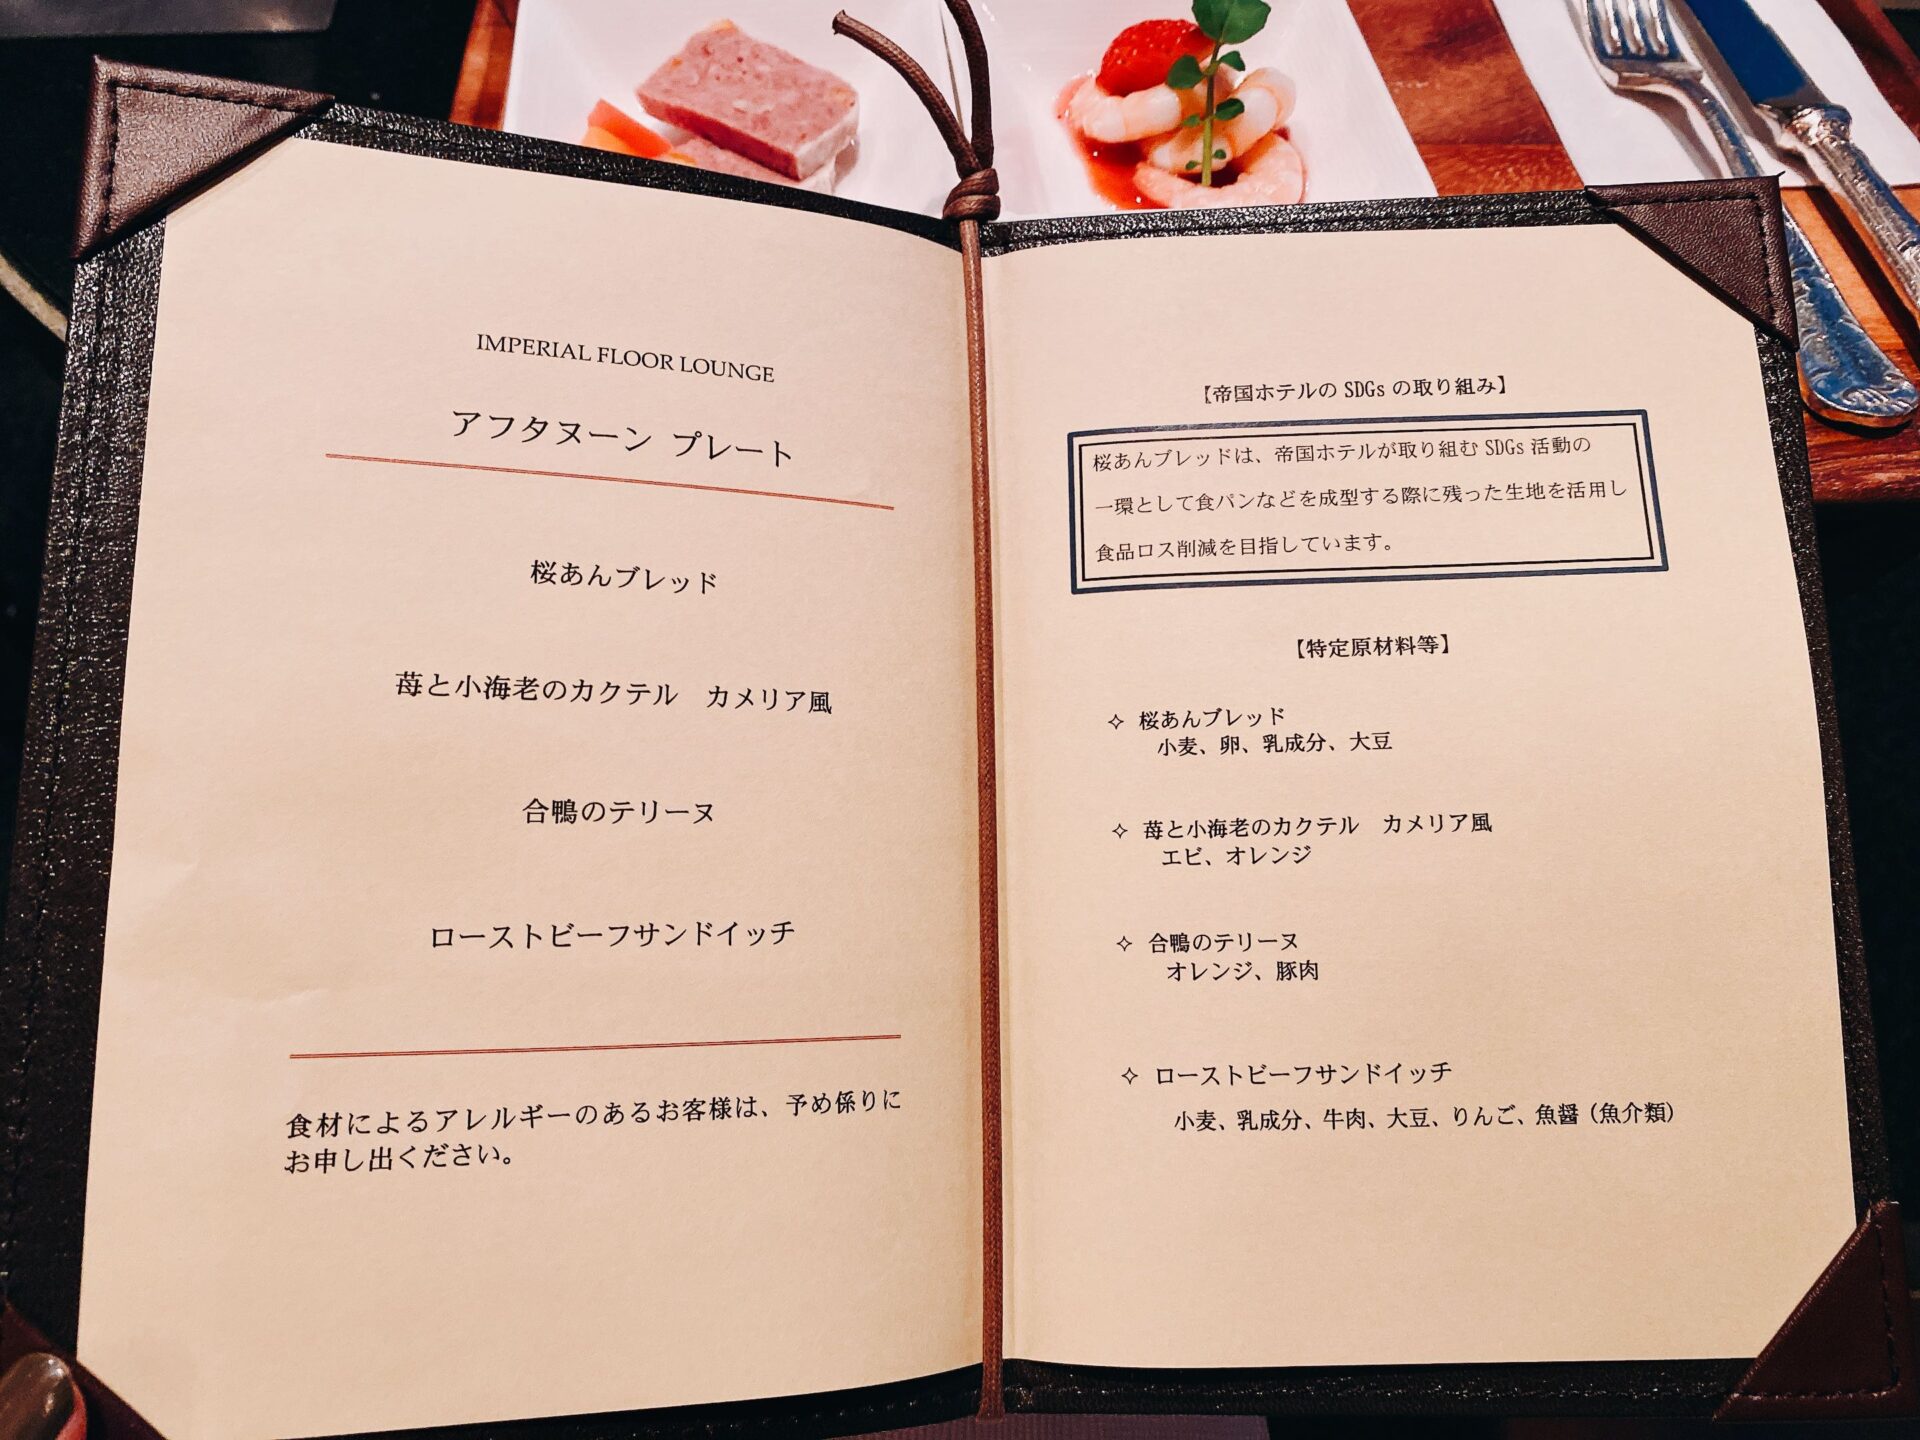 IMPERIAL FLOOR LOUNGE
アフタヌーン プレート
桜あんブレッド
苺と小海老のカクテル　カメリア風
合鴨のテリーヌ
ローストビーフサンドイッチ
食材によるアレルギーのあるお客様は、予め係りに
お申し出ください。
【帝国ホテルの SDGs の取り組み】
桜あんブレッドは、帝国ホテルが取り組む SDGs 活動の
一環として食パンなどを成型する際に残った生地を活用し
食品ロス削減を目指しています。
【特定原材料等】
✧ 桜あんブレッド
小麦、卵、乳成分、大豆
✧ 苺と小海老のカクテル　カメリア風
エビ、オレンジ
✧ 合鴨のテリーヌ
オレンジ、豚肉
✧ ローストビーフサンドイッチ
小麦、乳成分、牛肉、大豆、りんご、魚醤（魚介類）